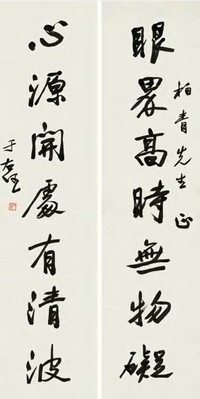 眼界高時無物礙
柏青先生正
心源開處有清波
于右任